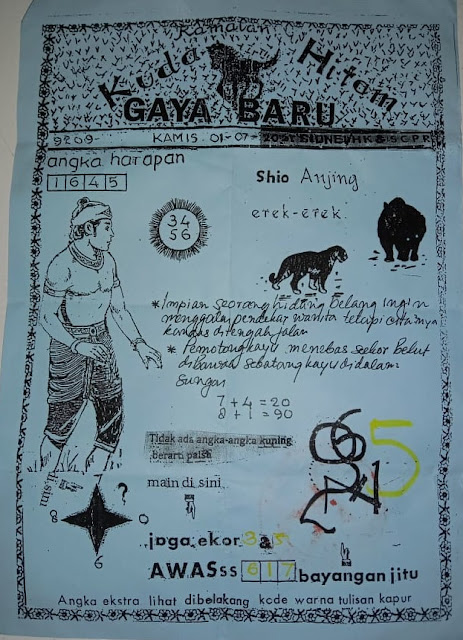 Ramalan
Kuda Hitam
GAYA BARU
9209- KAMIS 01-07-2021 SIDNEY/HK & SGP.P
angka harapan
1 6 4 5
Shio Anjing
erek-erek
34
56
* Impian seorang hidung belang ingin
menggalai pendekar wanita tetapi citanya
kandas ditengah jalan
* Pemotong kayu menebas seekor belut
dibawah sebatang kayu didalam
Sungai
7 + 4 = 20
8 + 1 = 90
Tidak ada angka-angka kuning
berarti palsu
main di sini
di sini
?
8
0
6
5
jaga ekor 3 & 5
AWASss 6 1 7 bayangan jitu
Angka ekstra lihat dibelakang kode warna tulisan kapur